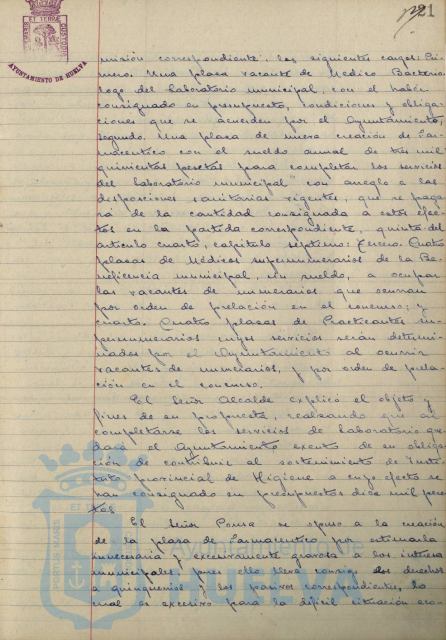 21
AYUNTAMIENTO DE HUELVA
misión correspondiente, los siguientes cargos: Pri-
mero. Una plaza vacante de Médico Bacterio-
logo del laboratorio municipal, con el haber
consignado en presupuesto, condiciones y obliga-
ciones que se acuerden por el Ayuntamiento,
segundo. Una plaza de nueva creación de Far-
maceutico con el sueldo anual de tres mil
quinientas pesetas para completar los servicios
del laboratorio municipal con arreglo a las
disposiciones sanitarias vigentes, que se paga-
rá de la cantidad consignada a estos efec-
tos en la partida correspondiente, quinta del
articulo cuarto, capitulo septimo: Tercero. Cuatro
plazas de Médicos supernumerarios de la Be-
neficencia municipal, sin sueldo, a ocupar
las vacantes de numerarios que ocurran
por orden de prelación en el concurso; y
cuarto. Cuatro plazas de Practicantes su-
pernumerarios cuyos servicios serán determi-
nados por el Ayuntamiento al ocurrir
vacantes de numerarios, y por orden de prela-
ción en el concurso.
El Señor Alcalde explicó el objeto y
fines de su propuesta, realzando que al
completarse los servicios de laboratorio que-
dara el Ayuntamiento exento de su obliga-
ción de contribuir al sostenimiento de Insti-
tuto provincial de Higiene a cuyo efecto se
van consignado en presupuestos diez mil pese-
tas.
El Señor Ponsa se opuso a la creación
de la plaza de Farmaceutico por estimarla
innecesaria y excesivamente gravosa a los intereses
municipales, pues ello lleva consigo los derechos
a quinquenios y los pasivos correspondientes, lo
cual es excesivo para la dificil situación eco-
PORTUS MARIS
Ayuntamiento de
HUELVA